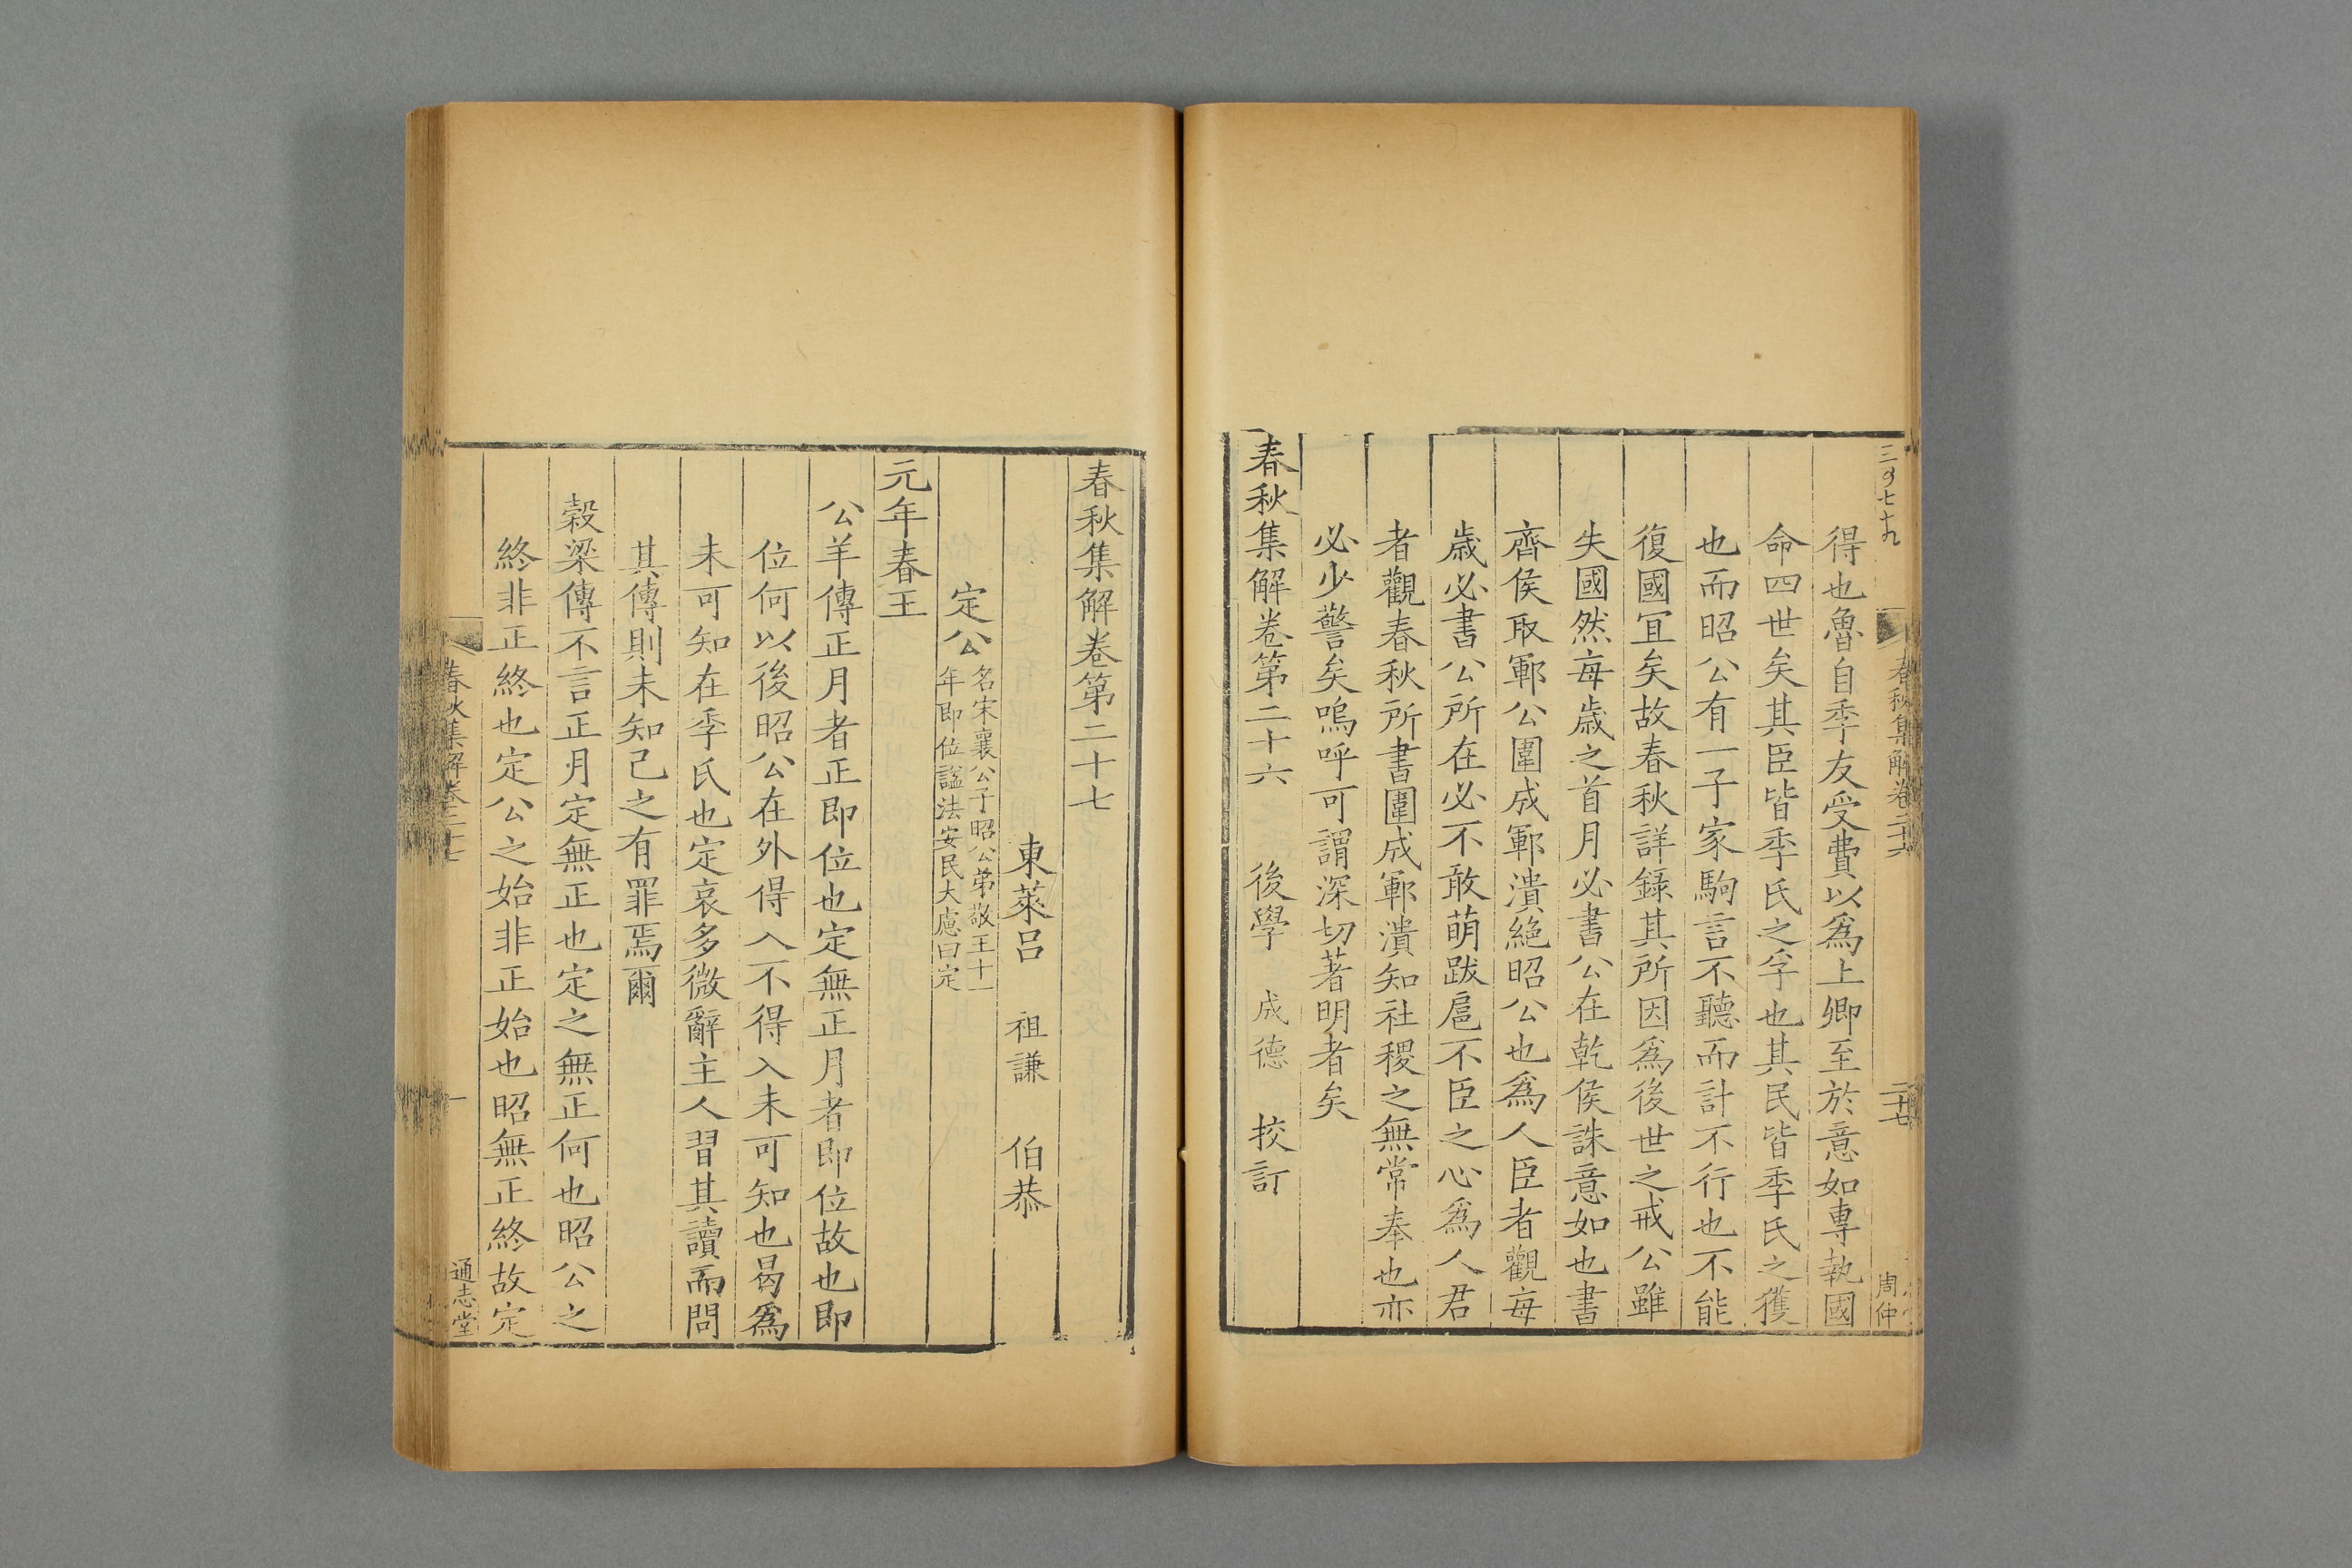 得也魯自季友受費以爲上卿至於意如專執國
命四世矣其臣皆季氏之孚也其民皆季氏之獲
也而昭公有一子家駒言不聽而計不行也不能
復國宜矣故春秋詳録其所因爲後世之戒公雖
失國然每歲之首月必書公在乾侯誅意如也書
齊侯取鄆公圍成鄆潰絶昭公也爲人臣者觀每
歲必書公所在必不敢萌跋扈不臣之心爲人君
者觀春秋所書圍成鄆潰知社稷之無常奉也亦
必少警矣嗚呼可謂深切著明者矣
春秋集解卷第二十六 後學 成德 挍訂
春秋集解卷二十六 二十七 周仲
春秋集解卷第二十七
東萊呂 祖謙 伯恭
定公 名宋襄公子昭公弟敬王十一
年即位謚法安民大慮曰定
元年春王
公羊傳正月者正即位也定無正月者即位故也即
位何以後昭公在外得入不得入未可知也曷爲
未可知在季氏也定哀多微辭主人習其讀而問
其傳則未知己之有罪焉爾
穀梁傳不言正月定無正也定之無正何也昭公之
終非正終也定公之始非正始也昭無正終故定
春秋集解卷二十七 一 通志堂